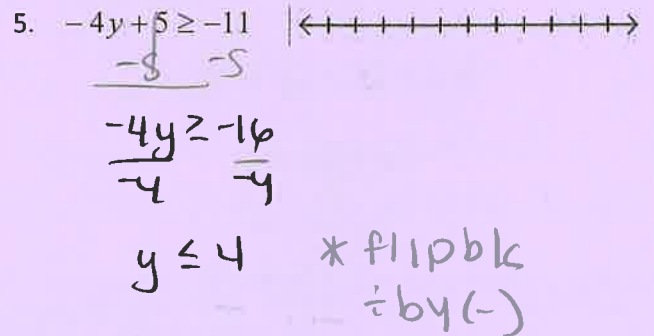 5. −4y+5 ≥ −11
-5 -5
-4y ≥ -16
-4 -4
y ≤ 4 * flip b/c
÷ by (-)